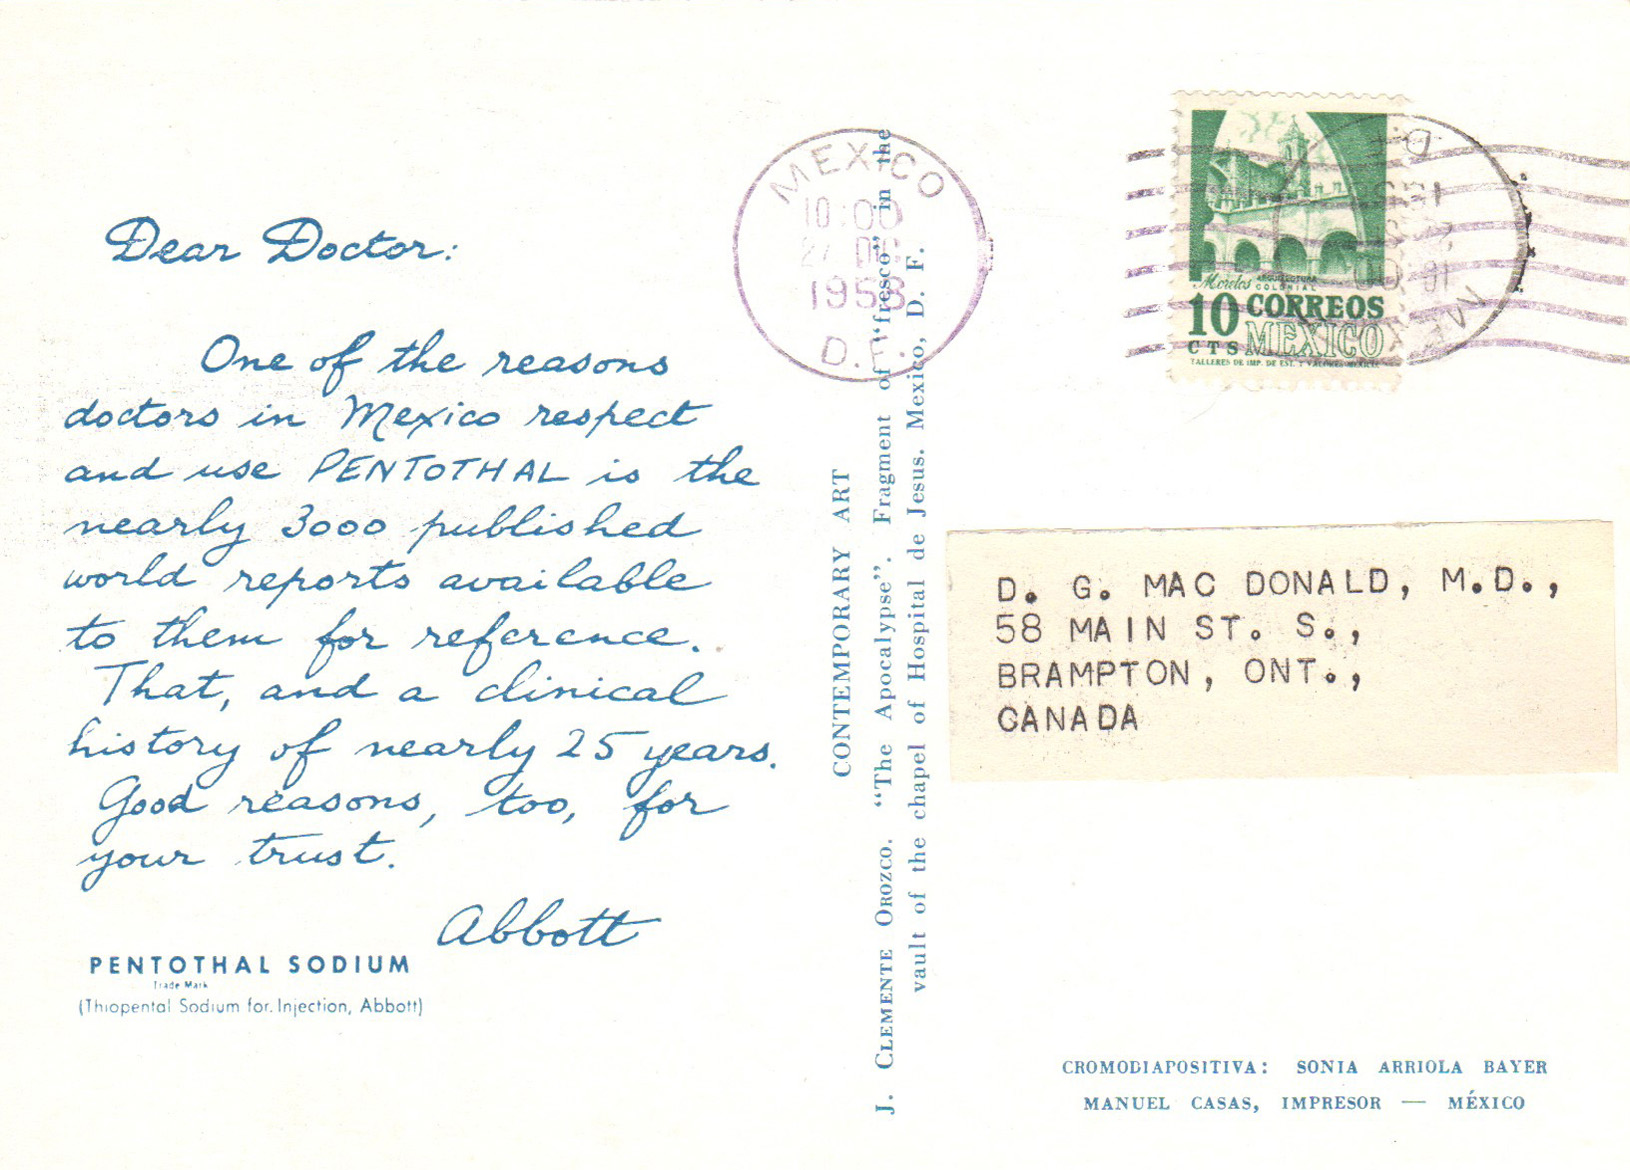 Dear Doctor:
One of the reasons
doctors in Mexico respect
and use PENTOTHAL is the
nearly 3000 published
world reports available
to them for reference.
That, and a clinical
history of nearly 25 years.
Good reasons, too, for
your trust.
Abbott
PENTOTHAL SODIUM
Trade Mark
(Thiopental Sodium for Injection, Abbott)
CONTEMPORARY ART
J. CLEMENTE OROZCO. "The Apocalypse". Fragment of "fresco" in the
vault of the chapel of Hospital de Jesus. Mexico, D. F.
MEXICO
10:00
27 DIC
1958
D.F.
Morelos ARQUITECTURA
COLONIAL
10 CORREOS
CTS MEXICO
TALLERES DE IMP. DE EST. Y VALORES-MEXICO
D. G. MAC DONALD, M.D.,
58 MAIN ST. S.,
BRAMPTON, ONT.,
CANADA
CROMODIAPOSITIVA: SONIA ARRIOLA BAYER
MANUEL CASAS, IMPRESOR — MÉXICO